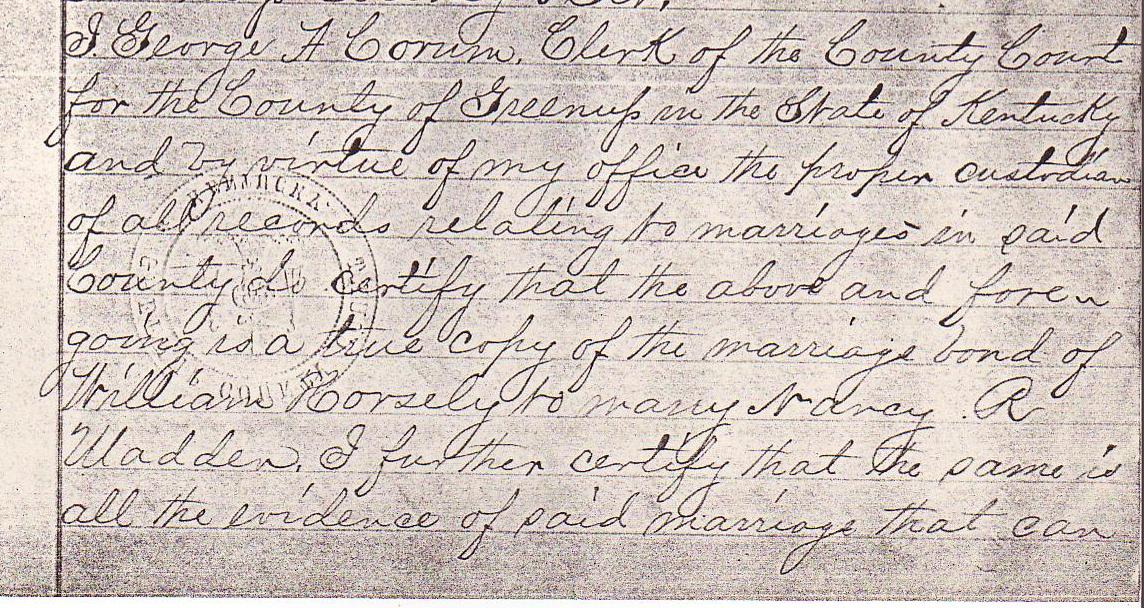 I George A Corum, Clerk of the County Court
for the County of Greenup in the State of Kentucky
and by virtue of my office the proper custodian
of all records relating to marriages in said
County do certify that the above and fore
going is a true copy of the marriage bond of
William Horsely to marry Nancy R
Madden. I further certify that the same is
all the evidence of said marriage that can